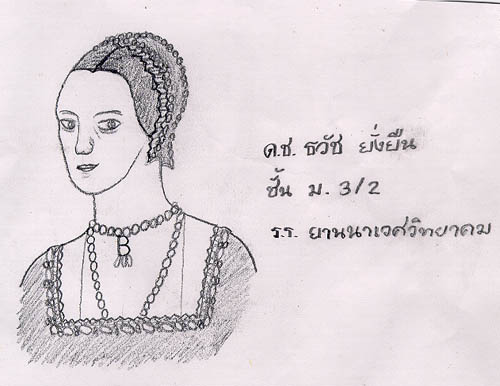 B
ด.ช. ธวัช ยั่งยืน
ชั้น ม. 3/2
ร.ร. ยานนาเวศวิทยาคม